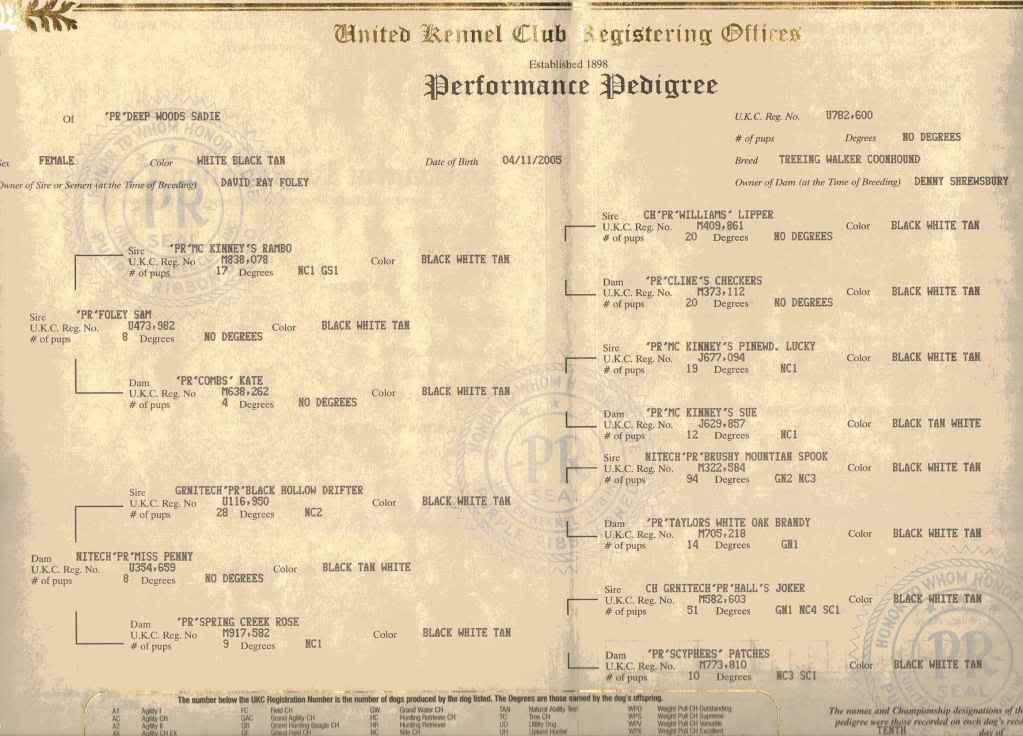 United Kennel Club Registering Offices
Established 1898
Performance Pedigree
Of 'PR'DEEP WOODS SADIE U.K.C. Reg. No. U782,600
# of pups Degrees NO DEGREES
Sex FEMALE Color WHITE BLACK TAN Date of Birth 04/11/2005 Breed TREEING WALKER COONHOUND
Owner of Sire or Semen (at the Time of Breeding) DAVID RAY FOLEY Owner of Dam (at the Time of Breeding) DENNY SHREWSBURY
Sire 'PR'MC KINNEY'S RAMBO
U.K.C. Reg. No M838,078 Color BLACK WHITE TAN
# of pups 17 Degrees NC1 GS1
Sire 'PR'FOLEY SAM
U.K.C. Reg. No. U473,982 Color BLACK WHITE TAN
# of pups 8 Degrees NO DEGREES
Dam 'PR'COMBS' KATE
U.K.C. Reg. No M638,262 Color BLACK WHITE TAN
# of pups 4 Degrees NO DEGREES
Sire GRNITECH'PR'BLACK HOLLOW DRIFTER
U.K.C. Reg. No U116,950 Color BLACK WHITE TAN
# of pups 28 Degrees NC2
Dam NITECH'PR'MISS PENNY
U.K.C. Reg. No. U354,659 Color BLACK TAN WHITE
# of pups 8 Degrees NO DEGREES
Dam 'PR'SPRING CREEK ROSE
U.K.C. Reg. No M917,582 Color BLACK WHITE TAN
# of pups 9 Degrees NC1
Sire CH'PR'WILLIAMS' LIPPER
U.K.C. Reg. No. M409,861 Color BLACK WHITE TAN
# of pups 20 Degrees NO DEGREES
Dam 'PR'CLINE'S CHECKERS
U.K.C. Reg. No. M373,112 Color BLACK WHITE TAN
# of pups 20 Degrees NO DEGREES
Sire 'PR'MC KINNEY'S PINEWD. LUCKY
U.K.C. Reg. No. J677,094 Color BLACK WHITE TAN
# of pups 19 Degrees NC1
Dam 'PR'MC KINNEY'S SUE
U.K.C. Reg. No. J629,857 Color BLACK TAN WHITE
# of pups 12 Degrees NC1
Sire NITECH'PR'BRUSHY MOUNTIAN SPOOK
U.K.C. Reg. No. M322,584 Color BLACK WHITE TAN
# of pups 94 Degrees GN2 NC3
Dam 'PR'TAYLORS WHITE OAK BRANDY
U.K.C. Reg. No. M705,218 Color BLACK WHITE TAN
# of pups 14 Degrees GN1
Sire CH GRNITECH'PR'HALL'S JOKER
U.K.C. Reg. No. M582,603 Color BLACK WHITE TAN
# of pups 51 Degrees GN1 NC4 SC1
Dam 'PR'SCYPHERS' PATCHES
U.K.C. Reg. No. M773,810 Color BLACK WHITE TAN
# of pups 10 Degrees NC3 SC1
The number below the UKC Registration Number is the number of dogs produced by the dog listed. The Degrees are those earned by the dog's offspring.
A1 Agility I FC Field CH GW Grand Water CH TAN Natural Ability Test WPO Weight Pull CH Outstanding
AC Agility CH GAC Grand Agility CH HC Hunting Retriever CH TC Tree CH WPS Weight Pull CH Supreme
A2 Agility II GB Grand Hunting Beagle CH HR Hunting Retriever UD Utility Dog WPV Weight Pull CH Versatile
Agility CH EX GF Grand Field CH NC Nite CH UH Upland Hunter Weight Pull CH Excellent
The names and Championship designations of th
pedigree were those recorded on each dog's reco
TENTH day of